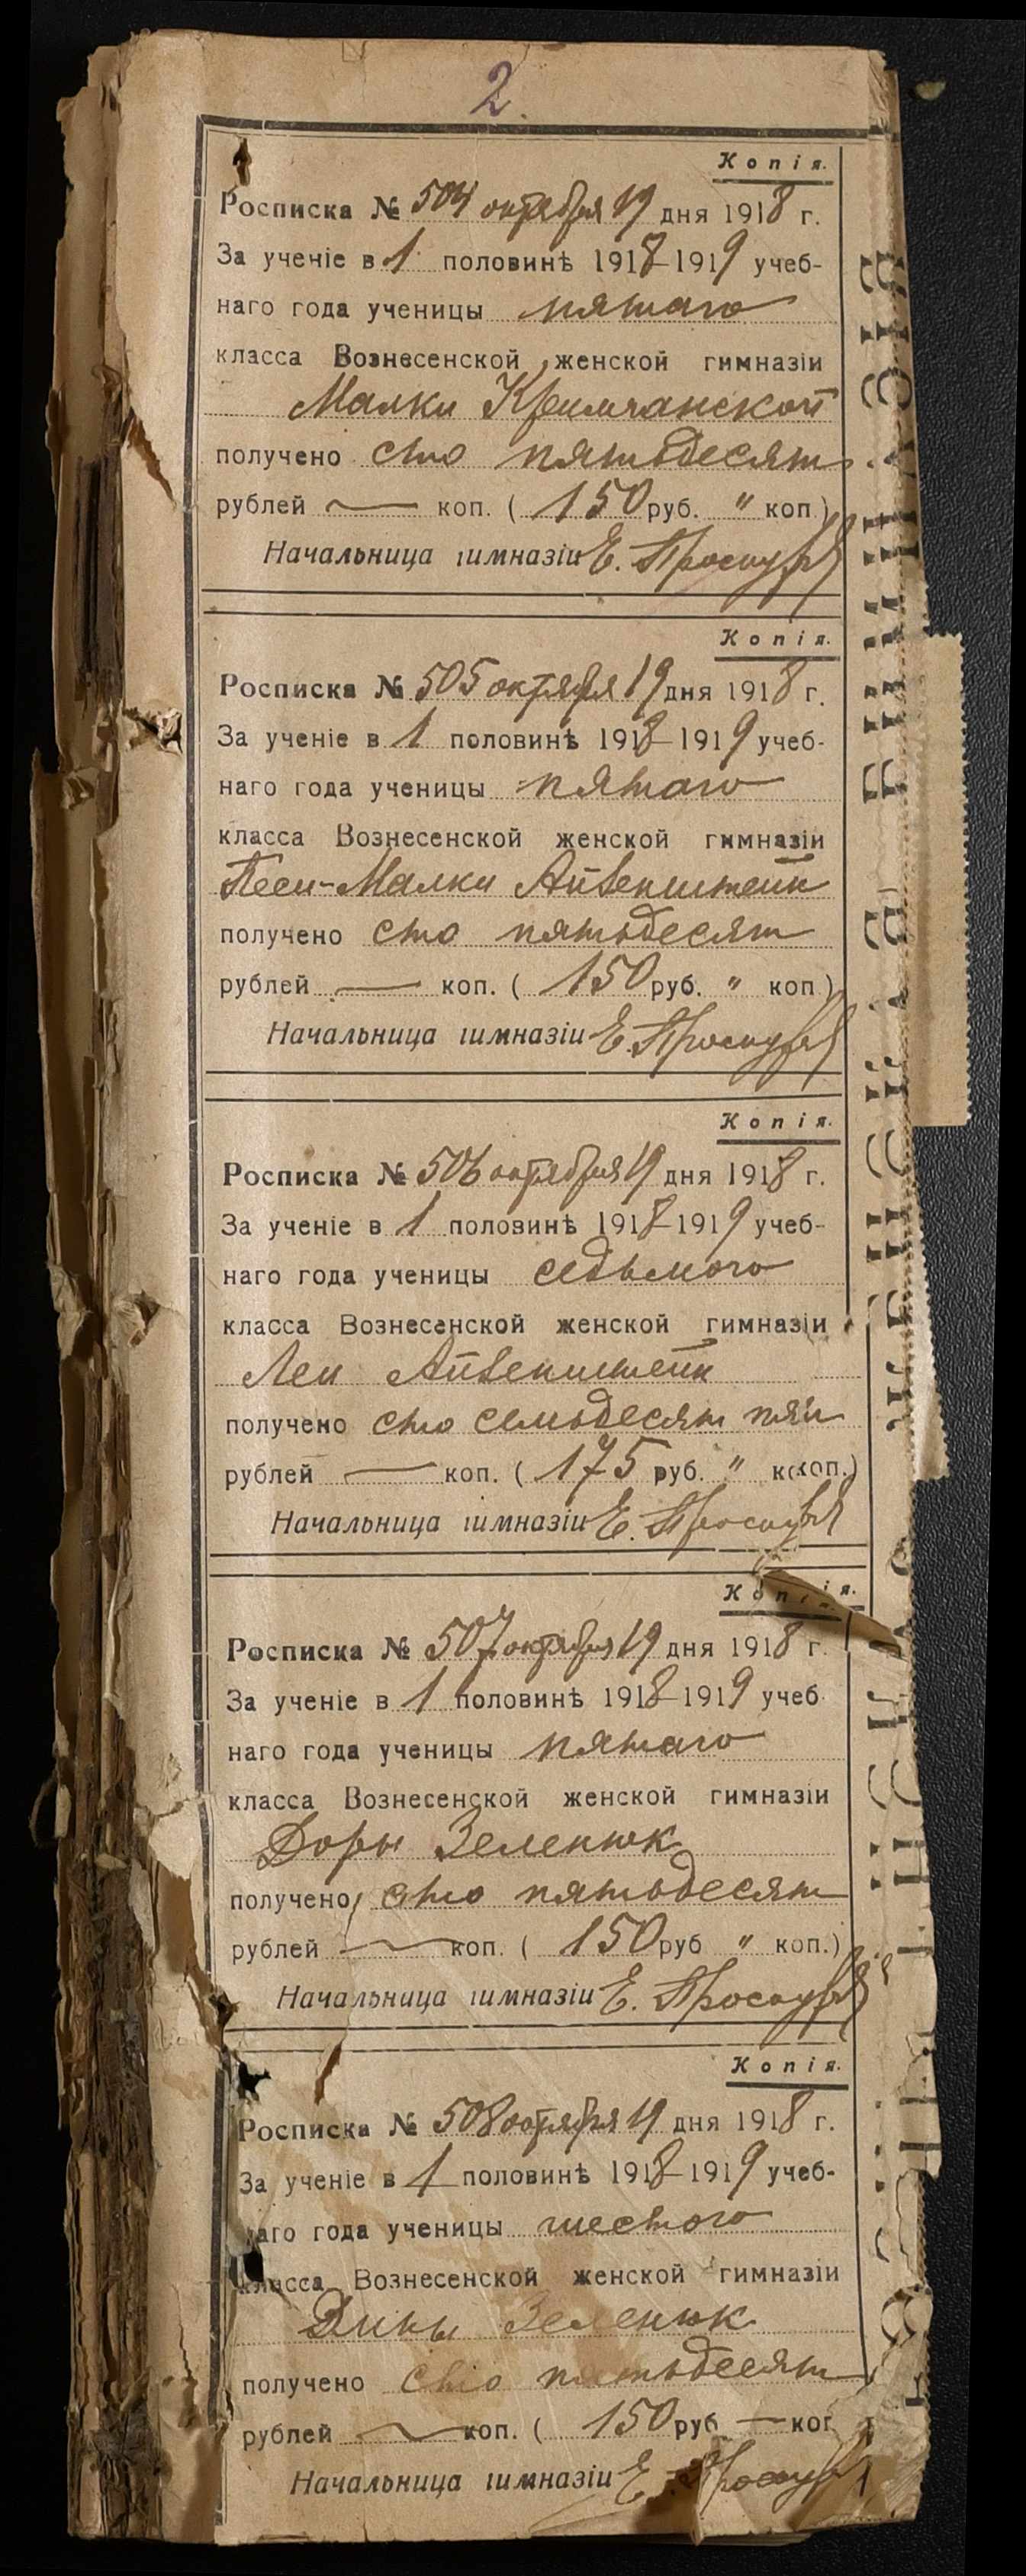 2.
Копія.
Росписка № 504 октября 19 дня 1918 г.
За ученіе в 1 половинѣ 1918-1919 учеб-
наго года ученицы пятаго
класса Вознесенской женской гимназіи
Малки Кримчанской
получено сто пятьдесят
рублей — коп. ( 150 руб. " коп.)
Начальница гимназіи Е.
Копія.
Росписка № 505 октября 19 дня 1918 г.
За ученіе в 1 половинѣ 1918-1919 учеб-
наго года ученицы пятаго
класса Вознесенской женской гимназіи
Песи-Малки Айзенштейн
получено сто пятьдесят
рублей — коп. ( 150 руб. " коп)
Начальница гимназіи Е.
Копія.
Росписка № 506 октября 19 дня 1918 г.
За ученіе в 1 половинѣ 1918-1919 учеб-
наго года ученицы седьмого
класса Вознесенской женской гимназіи
Леи Айзенштейн
получено сто семьдесят пять
рублей — коп. ( 175 руб. " коп.)
Начальница гимназіи Е.
Копія.
Росписка № 507 октября 19 дня 1918 г.
За ученіе в 1 половинѣ 1918-1919 учеб
наго года ученицы пятаго
класса Вознесенской женской гимназіи
Доры Зеленюк
получено сто пятьдесят
рублей — коп. ( 150 руб " коп.)
Начальница гимназіи Е.
Копія.
Росписка № 508 октября 19 дня 1918 г.
За ученіе в 1 половинѣ 1918-1919 учеб-
наго года ученицы шестого
класса Вознесенской женской гимназіи
Дины Зеленюк
получено сто пятьдесят
рублей — коп. ( 150 руб — коп
Начальница гимназіи Е.